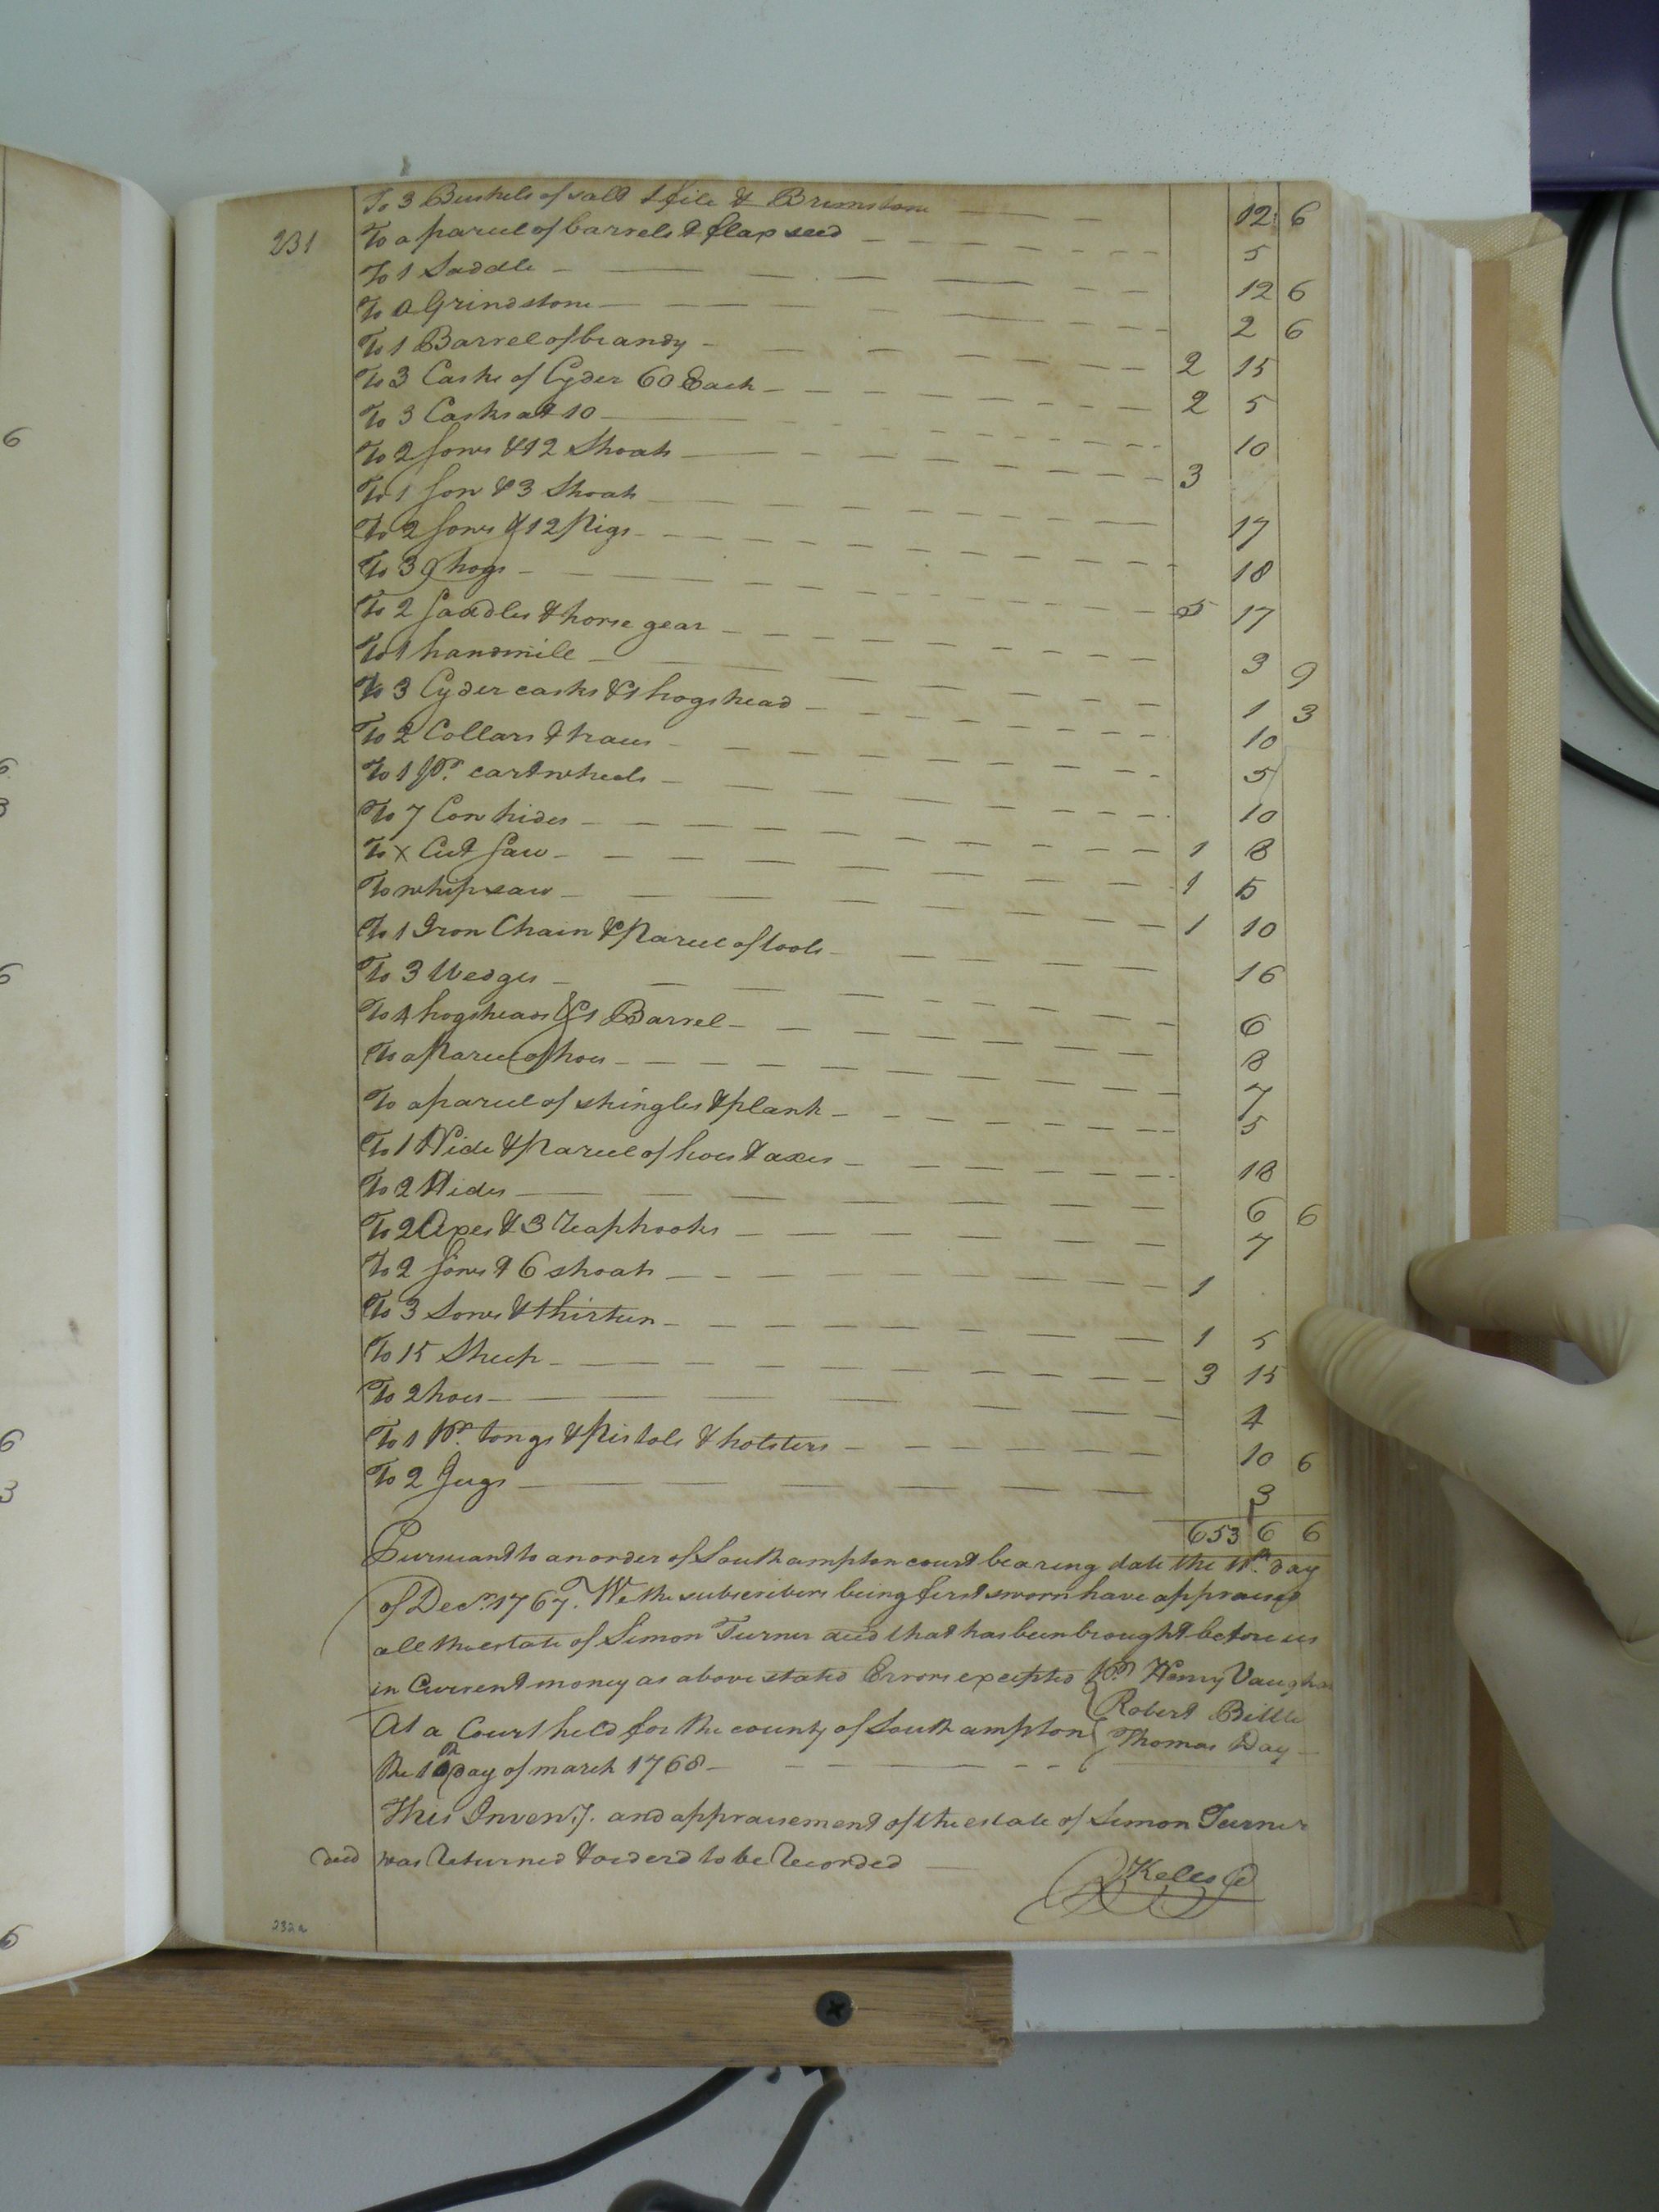 231
To 3 Bushels of salt 1 file & Brimstone 12 6
To a parcel of barrels & flax seed 5
To 1 Saddle 12 6
To a Grindstone 2 6
To 1 Barrel of brandy 2 15
To 3 Casks of Cyder 60 Each 2 5
To 3 Casks at 10 10
To 2 Sows & 12 Shoats 3
To 1 Sow & 3 Shoats 17
To 2 Sows & 12 Pigs 18
To 39 hogs 5 17
To 2 Saddles & horse gear 3 9
To 1 handmile 1 3
To 3 Cyder casks & 1 hogshead 10
To 2 Collars & traces 5
To 1 pr. cartwheels 10
To 7 Cow hides 1 8
To x Cut Saw 1 5
To whipsaw 1 10
To 1 Iron Chain & Parcel of tools 16
To 3 Wedges 6
To 4 hogsheads & 1 Barrel 8
To a Parcel of hoes 7
To a parcel of shingles & plank 5
To 1 Hide & Parcel of hoes & axes 18
To 2 Hides 6 6
To 2 Axes & 3 reaphooks 7
To 2 Sows & 6 shoats 1
To 3 Sows & thirteen 1 5
To 15 Sheep 3 15
To 2 hoes 4
To 1 Pr. tongs & Pistols & holsters 10 6
To 2 Jugs 3
653 6 6
Pursuant to an order of Southampton court bearing date the 11th. day
of Decr. 1767. We the subscribers being first sworn have appraised
all the estate of Simon Turner decd that has been brought before us
in Current money as above stated Errors excepted Henry Vaughan
Robert Bittle
At a Court held for the county of Southampton Thomas Day
the 10th day of march 1768
This Inven.y. and appraisement of the estate of Simon Turner
decd was Returned & orderd to be Recorded
R Kello C
232a
6
6
3
6
6
3
6